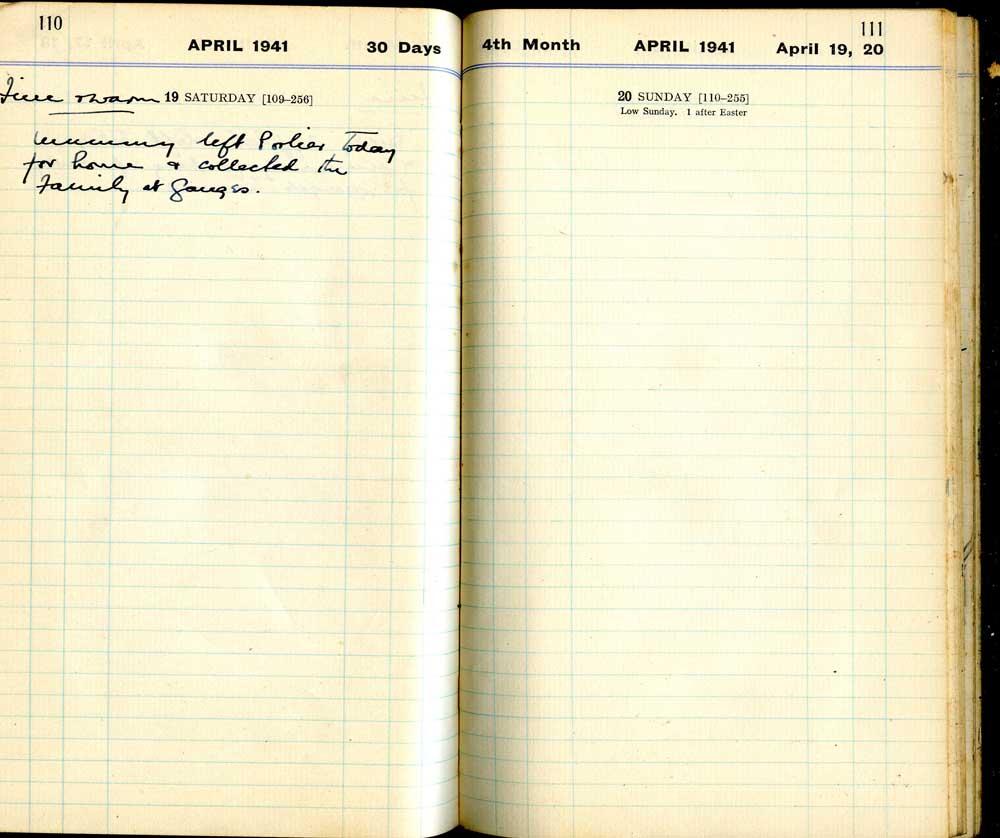 110
APRIL 1941 30 Days
Fine & warm 19 SATURDAY [109–256]
Mummy left Porlier today
for home & collected the
Family at Ganges.
111
4th Month APRIL 1941 April 19, 20
20 SUNDAY [110–255]
Low Sunday. 1 after Easter